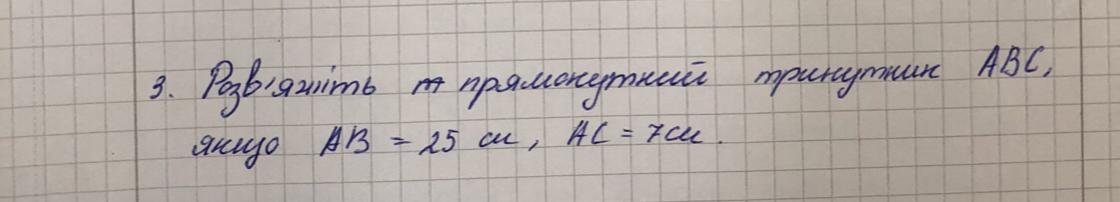 3. Розв'яжіть прямокутний трикутник ABC,
якщо AB = 25 см, AC = 7см.